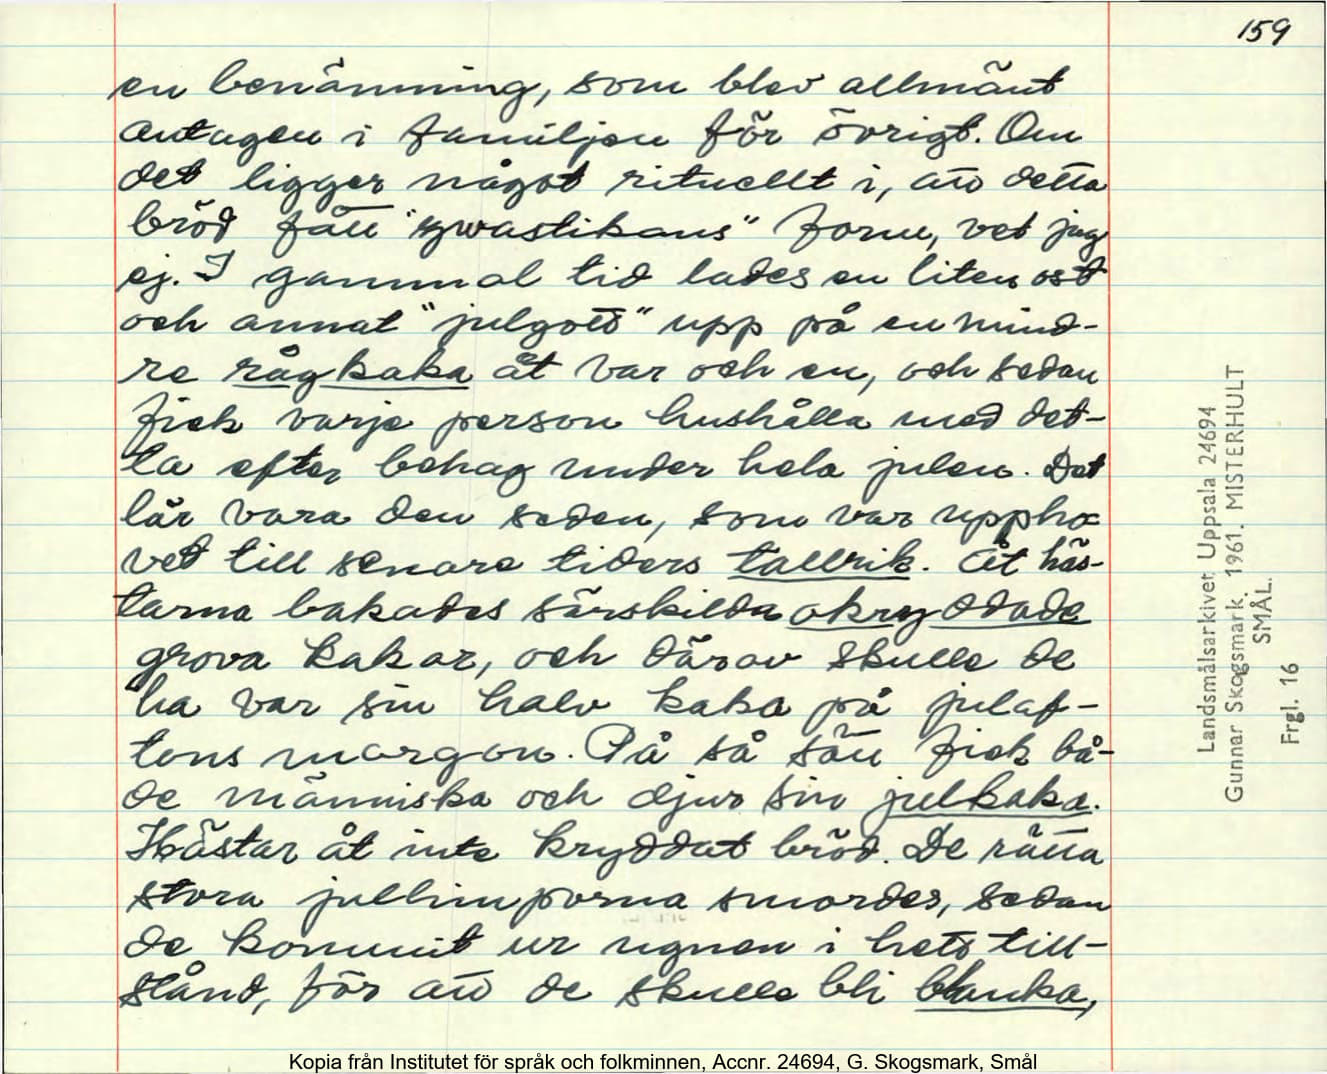 159
en benämning, som blev allmänt
antagen i familjen för övrigt. Om
det ligger något rituellt i, att detta
bröd fått "zwastikans" form, vet jag
ej. I gammal tid lades en liten ost
och annat "julgott" upp på en mind-
re rågkaka åt var och en, och sedan
fick varje person hushålla med det-
ta efter behag under hela julen. Det
lär vara den seden, som var uppho-
vet till senare tiders tallrik. Åt häs-
tarna bakades särskilda okryddade
grova kakor, och därav skulle de
ha var sin halv kaka på julaf-
tons morgon. På så sätt fick bå-
de människa och djur sin julkaka.
Hästar åt inte kryddat bröd. De rätta
stora jullimporna smordes, sedan
de kommit ur ugnen i hett till-
stånd, för att de skulle bli blanka,
Landsmålsarkivet Uppsala 24694
Gunnar Skogsmark. 1961. MISTERHULT
SMÅL.
Frgl. 16
Kopia från Institutet för språk och folkminnen, Accnr. 24694, G. Skogsmark, Smål